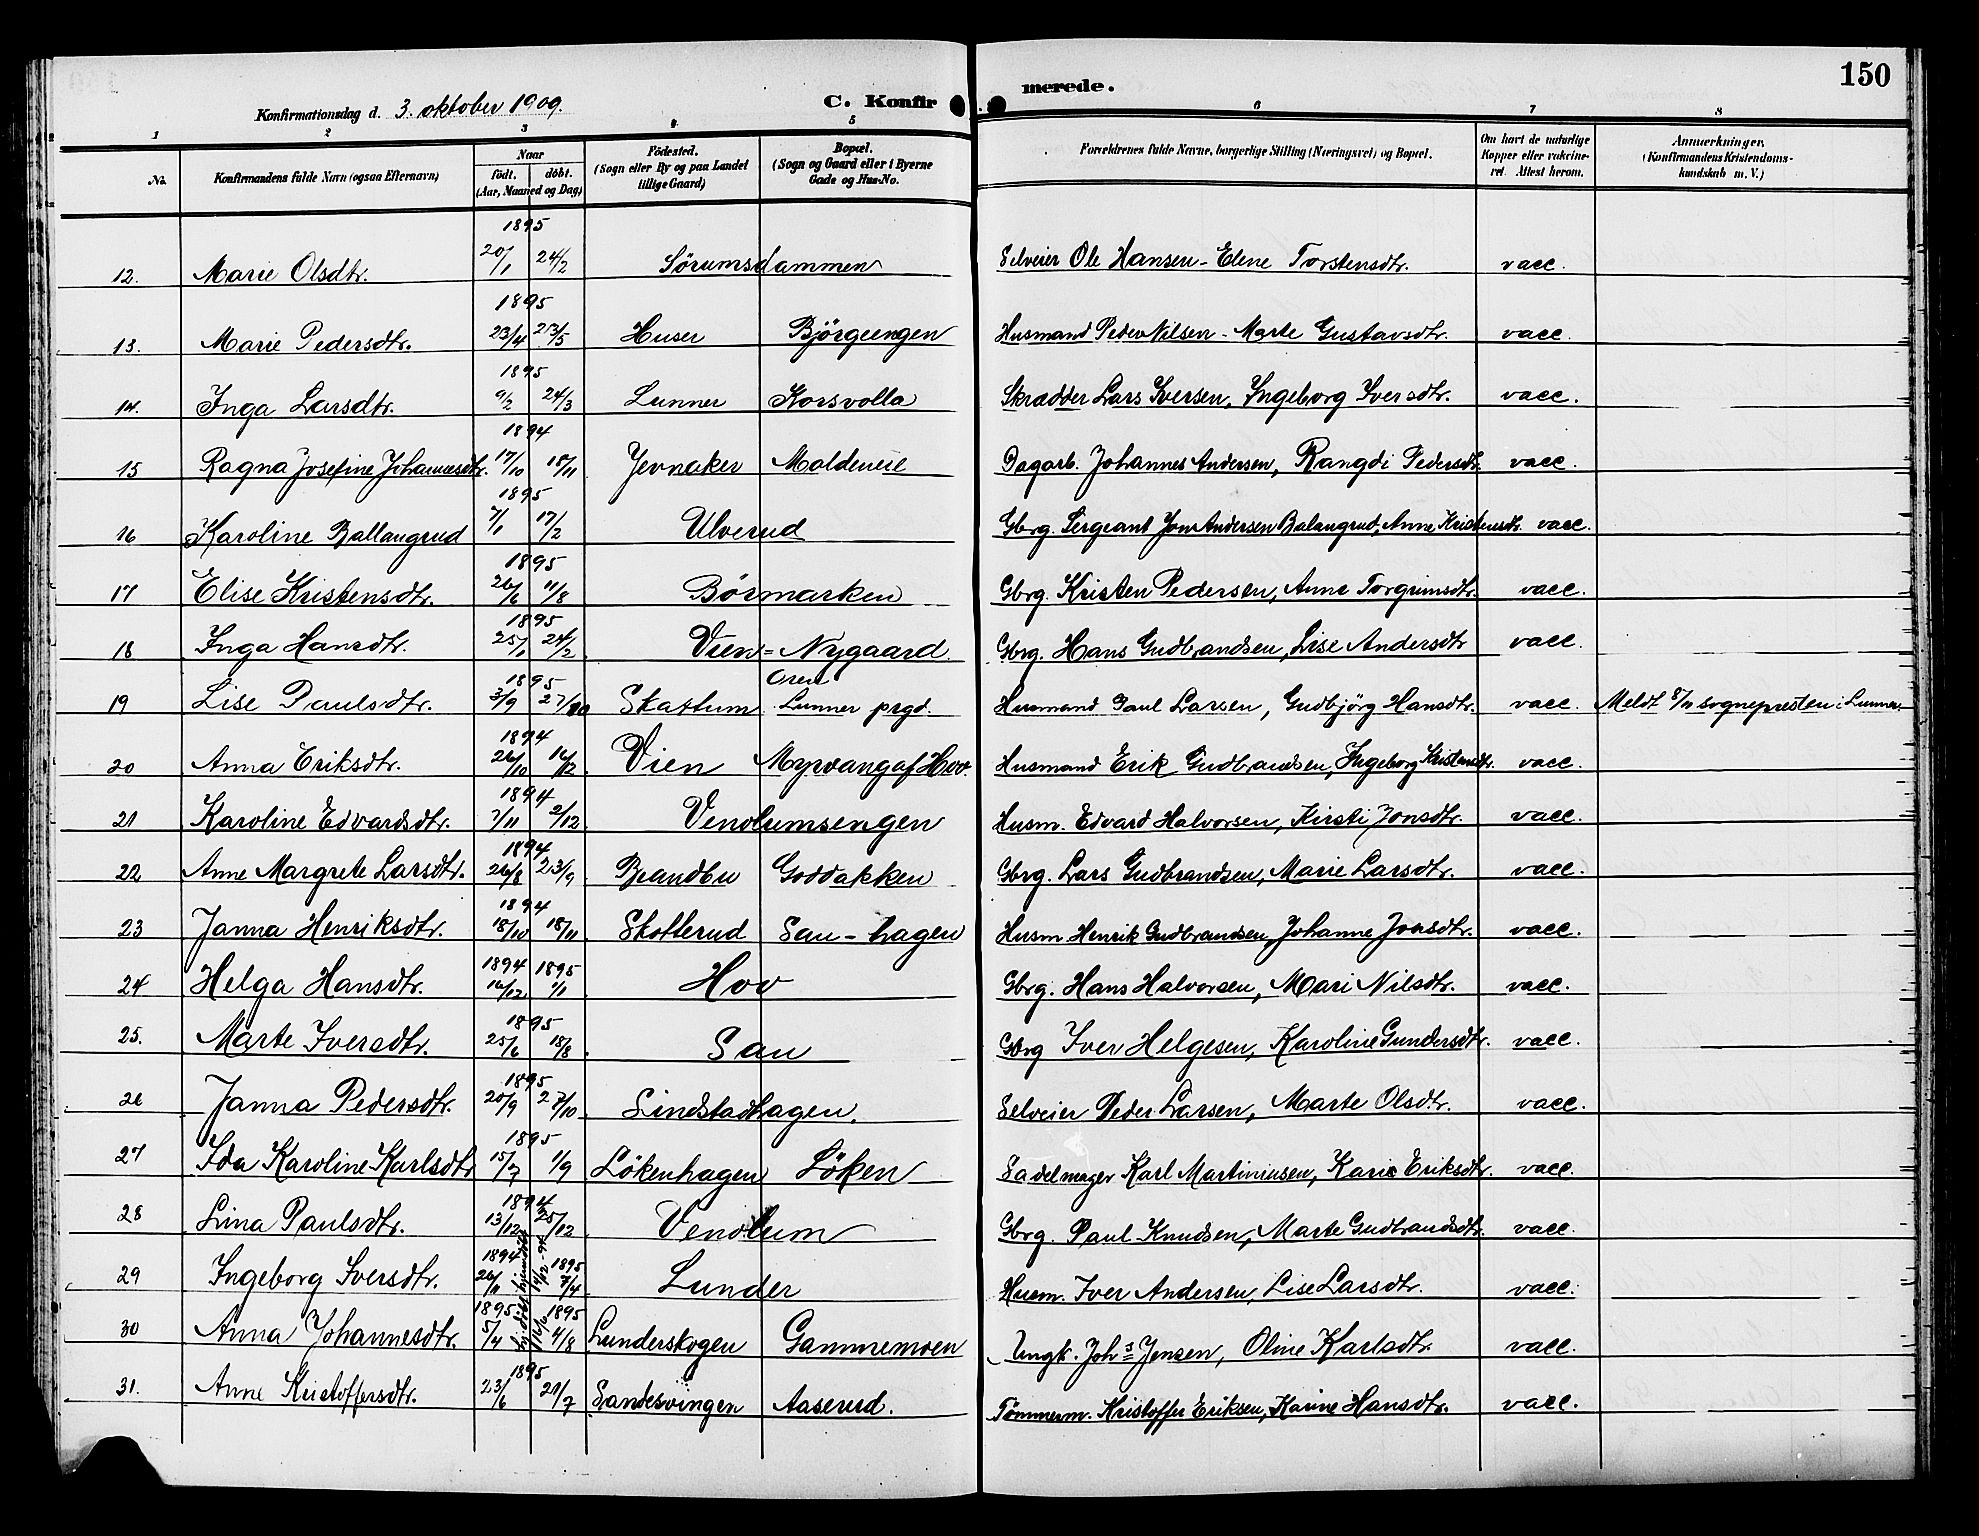 150
Konfirmationsdag d. 3. oktober 1909.
C. Konfirmerede.
1 2 3 4 5 6 7 8
No. Konfirmandens fulde Navn (ogsaa Efternavn) Naar födt. döbt. (Aar, Maaned og Dag) Födested. (Sogn eller By og paa Landet tillige Gaard) Bopæl. (Sogn og Gaard eller i Byerne Gade og Hus-No. Forældrenes fulde Navne, borgerlige Stilling (Næringsvei) og Bopæl. Om havt de naturlige Kopper eller vakcineret. Attest herom. Anmerkninger. (Konfirmandens Kristendomskundskab m. V.)
1895
12. Marie Olsdtr. 20/1 24/2 Sörumsdammen Selveier Ole Hansen - Elene Torstensdtr. vacc.
1895
13. Marie Pedersdtr. 23/4 23/5 Huser Björgeengen Husmand Peder Nilsen - Marte Gustavsdtr. vacc.
1895
14. Inga Larsdtr. 9/2 24/3 Lunner Korsvolla Skrædder Lars Iversen, Ingeborg Iversdtr. vacc.
1894
15 Ragna Josefine Johannesdtr. 17/10 18/11 Jevnaker Moldeneie Dagarb. Johannes Andersen, Rangdi Pedersdtr. vacc.
1895
16 Karoline Ballangrud 7/1 17/2 Ulverud Gbrg. Sergeant Jon Andersen Balangrud, Anne Kristensdtr. vacc.
1895
17 Elise Kristensdtr. 26/6 11/8 Börmarken Gbrg. Kristen Pedersen, Anne Torgrimsdtr. vacc.
1895
18 Inga Hansdtr. 25/1 24/2 Vien = Nygaard Gbrg. Hans Gudbrandsen, Lise Andersdtr vacc.
1895 Oren
19 Lise Paulsdtr. 3/9 27/10 Skattum Lunner prgd. Husmand Paul Larsen, Gudbjörg Hansdtr. vacc. Meldt 8/11 sognepresten i Lunner
1894
20 Anna Eriksdtr. 26/10 16/12 Vien Myrvang af Hov. Husmand Erik Gudbrandsen, Ingeborg Kristensdtr. vacc.
1894
21 Karoline Edvardsdtr. 7/11 2/12 Venolumsengen Husm. Edvard Halvorsen, Kirsti Jonsdtr. vacc.
1894
22 Anne Margrete Larsdtr. 26/8 23/9 Brandbu Goddakken Gbrg. Lars Gudbrandsen, Marie Larsdtr. vacc.
1894
23 Janna Henriksdtr. 18/10 18/11 Skotterud San-hagen Husm Henrik Gudbrandsen, Johanne Jonsdtr. vacc.
1894 1895
24 Helga Hansdtr. 16/12 1/1 Hov Gbrg. Hans Halvorsen, Mari Nilsdtr. vacc.
1895
25. Marte Iversdtr. 25/6 18/8 San Gbrg Iver Helgesen, Karoline Gundersdtr. vacc.
1895
26 Janna Pedersdtr. 20/9 27/10 Lindstadhagen. Selveier Peder Larsen, Marte Olsdtr. vacc.
1895
27 Ida Karoline Karlsdtr 15/7 1/9 Lökenhagen Löken Sadelmager Karl Martiniusen, Karie Eriksdtr. vacc.
1894
28 Lina Paulsdtr. 13/12 25/12 Venolum Gbrg. Paul Knudsen, Marte Gudbrandsdtr. vacc.
1894 1895
29 Ingeborg Iversdtr. 26/11 14/12-94 7/4 Lunder Husm. Iver Andersen, Lise Larsdtr. vacc.
1895 1895
30 Anna Johannesdtr. 5/4 4/8 Lunderskogen Gammemoen Ungk. Johs Jensen, Oline Karlsdtr. vacc.
1895
31. Anne Kristoffersdtr. 23/6 21/7 Sandesvingen Aaserud. Tömmerm. Kristoffer Eriksen, Karine Hansdtr. vacc.